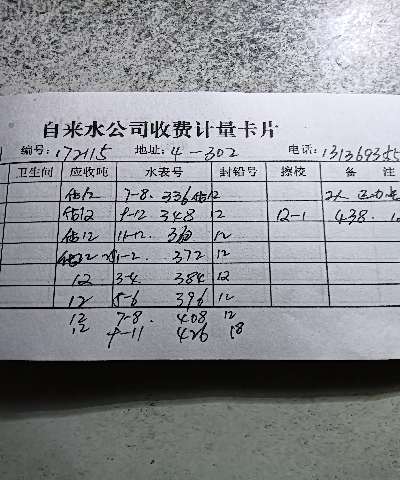 自来水公司收费计量卡片
编号: 172115 地址: 4-302 电话: 131369355
卫生间 应收吨 水表号 封铅号 擦校 备 注
估12 7-8. 336 估12 2人
估12 9-12 348 12 12-1 438.
估12 11-12. 360 12
估12 1-2. 372 12
12 3-4 384 12
12 5-6 396 12
12 7-8. 408 12
12 9-11 426 18